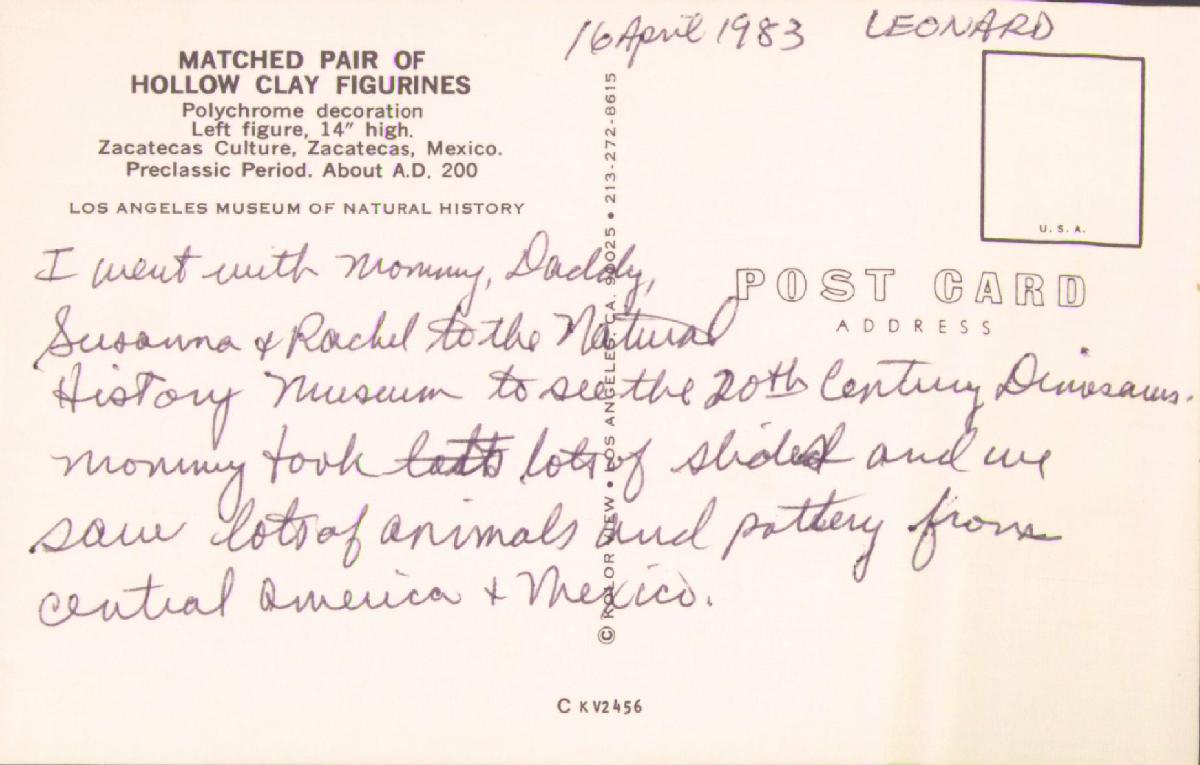 16 April 1983 LEONARD
MATCHED PAIR OF
HOLLOW CLAY FIGURINES
Polychrome decoration
Left figure, 14″ high.
Zacatecas Culture, Zacatecas, Mexico.
Preclassic Period. About A.D. 200
LOS ANGELES MUSEUM OF NATURAL HISTORY
I went with Mommy, Daddy,
Susanna & Rachel to the Natural
History Museum to see the 20th Century Dinosaurs.
Mommy took lots of slides and we
saw lots of animals and pottery from
central America & Mexico.
© KOLOR VIEW • LOS ANGELES, CA. 90025 • 213-272-8615
U. S. A.
POST CARD
ADDRESS
C KV2456